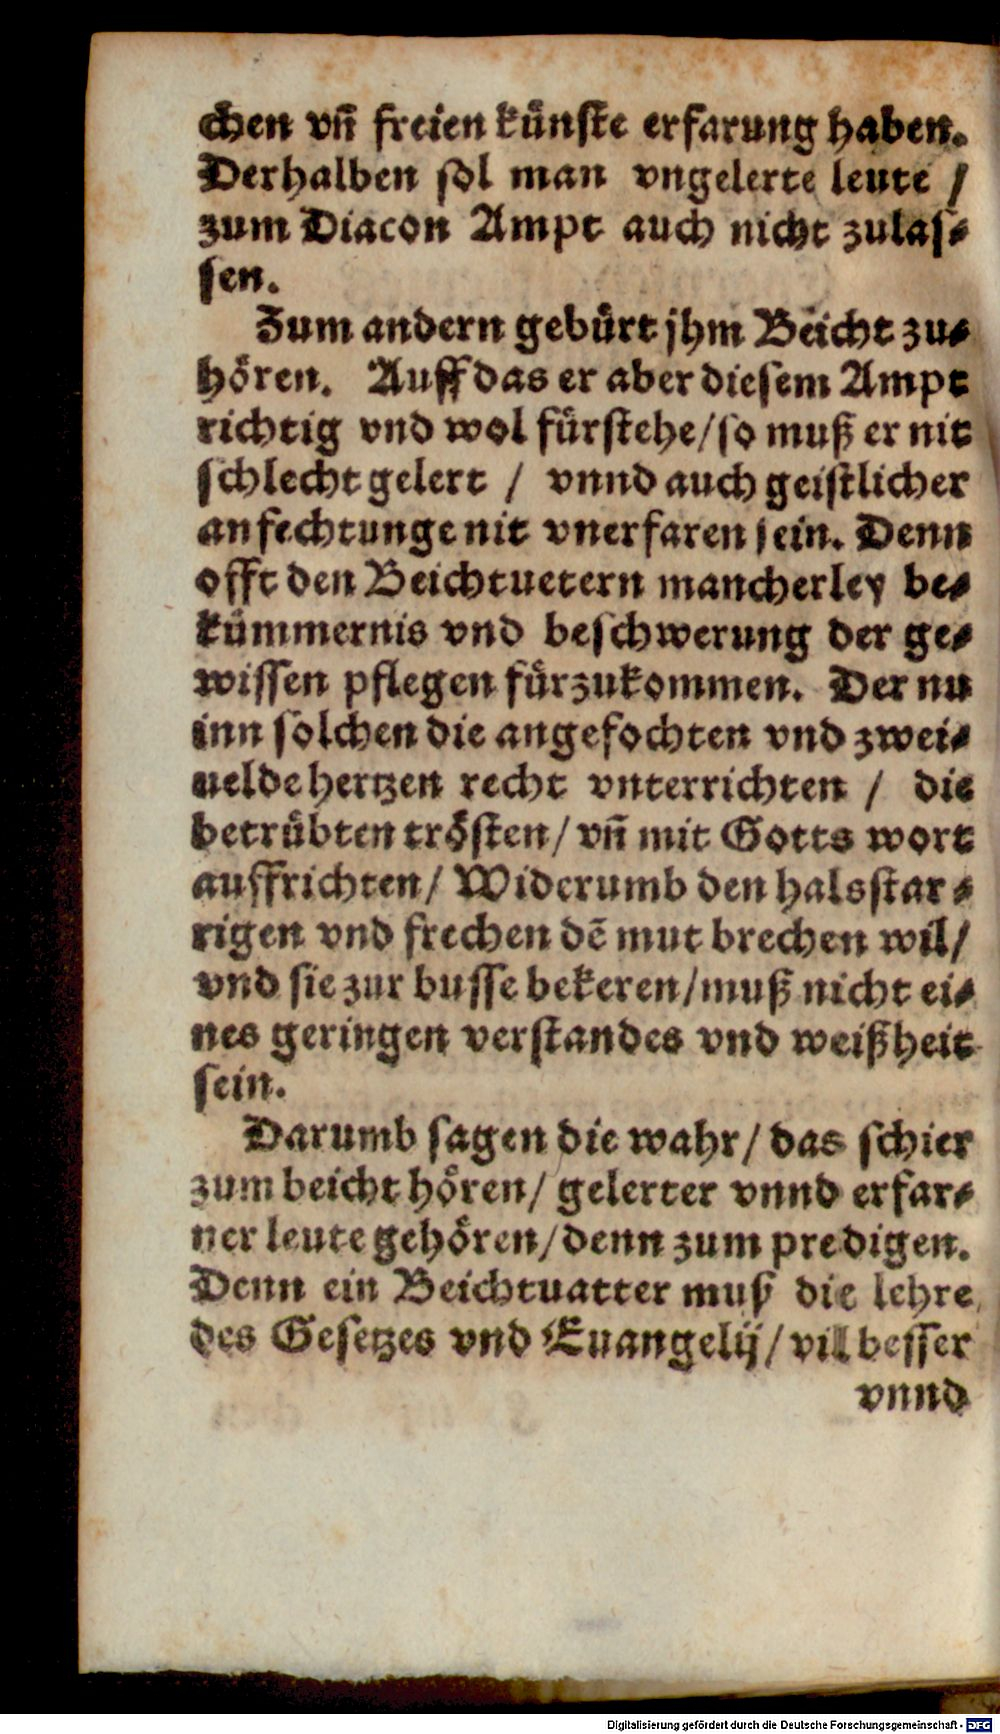 chen vñ freien künste erfarung haben.
Derhalben sol man vngelerte leute /
zum Diacon Ampt auch nicht zulas⸗
sen.
Zum andern gebürt jhm Beicht zu⸗
hören. Auff das er aber diesem Ampt
richtig vnd wol fürstehe/so muß er nit
schlecht gelert / vnnd auch geistlicher
anfechtunge nit vnerfaren sein. Denn
offt den Beichtuetern mancherley be⸗
kümmernis vnd beschwerung der ge⸗
wissen pflegen fürzukommen. Der nu
inn solchen die angefochten vnd zwei⸗
uelde hertzen recht vnterrichten / die
betrübten trösten/ vñ mit Gotts wort
auffrichten/ Widerumb den halsstar⸗
rigen vnd frechen dē mut brechen wil/
vnd sie zur busse bekeren/muß nicht ei⸗
nes geringen verstandes vnd weißheit
sein.
Darumb sagen die wahr/ das schier
zum beicht hören/ gelerter vnnd erfar⸗
ner leute gehören/denn zum predigen.
Denn ein Beichtuatter muß die lehre
des Gesetzes vnd Euangelij/ vil besser
vnnd
Digitalisierung gefördert durch die Deutsche Forschungsgemeinschaft - DFG